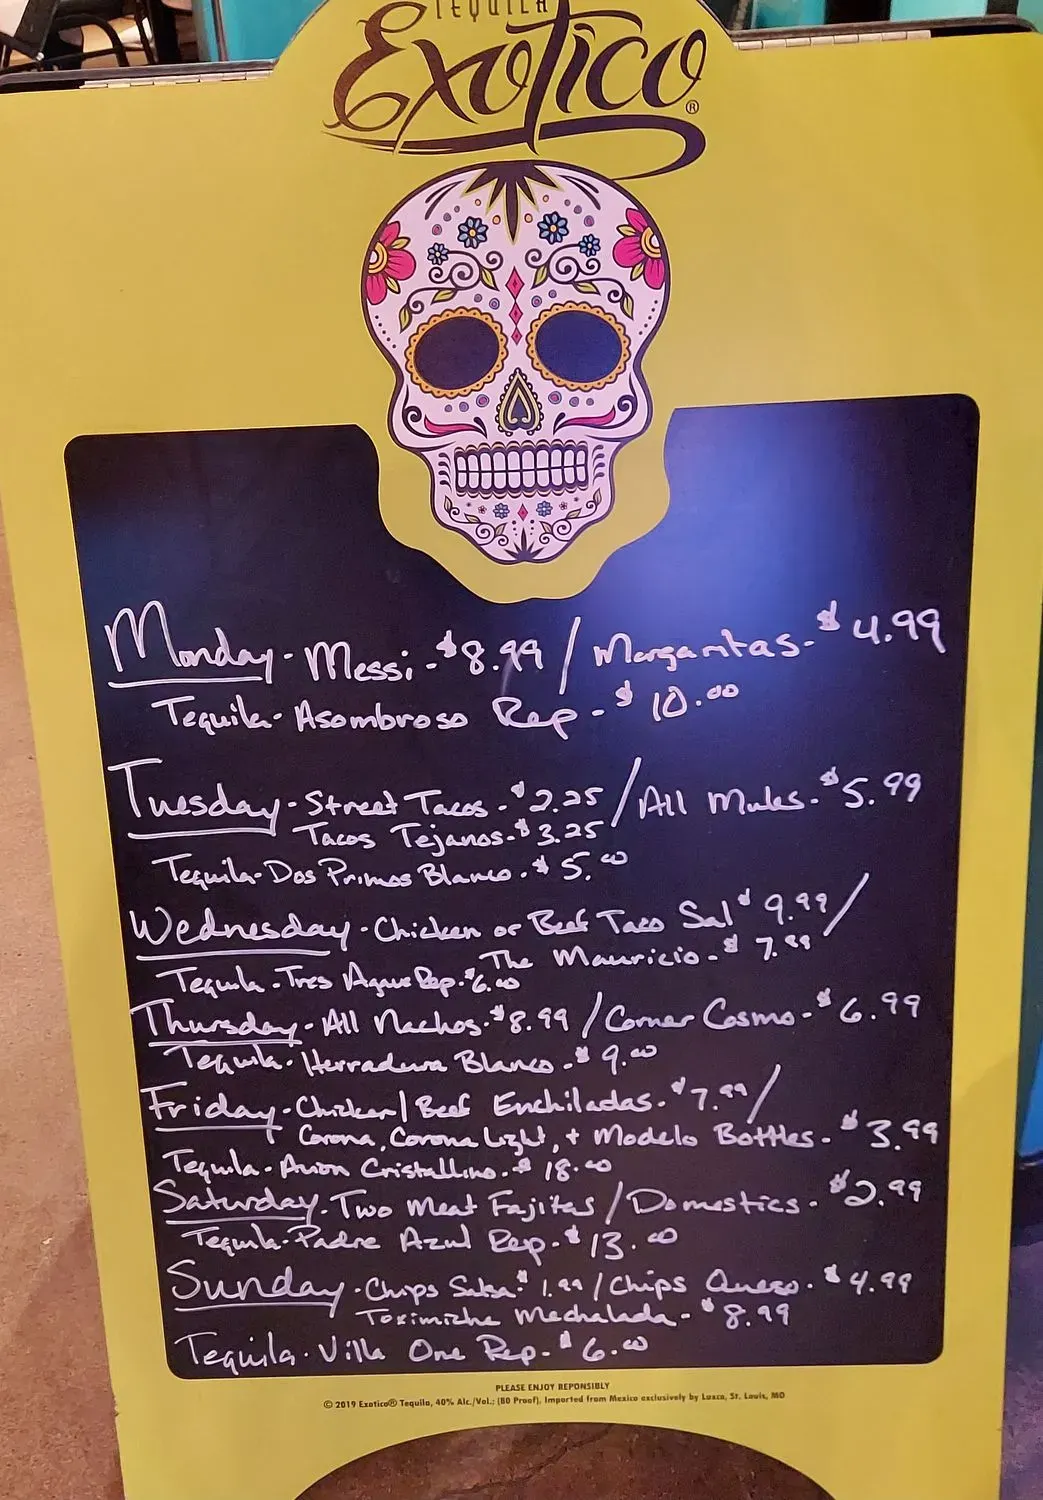 TEQUILA
Exotico®
Monday - Messi - $8.99 / Margaritas - $4.99
Tequila - Asombroso Rep - $10.00
Tuesday - Street Tacos - $2.25 / All Mules - $5.99
Tacos Tejanos - $3.25
Tequila - Dos Primos Blanco - $5.00
Wednesday - Chicken or Beef Taco Sal $9.99 /
The Mauricio - $7.99
Tequila - Tres Agave Rep - $6.00
Thursday - All Nachos - $8.99 / Corner Cosmo - $6.99
Tequila - Herradura Blanco - $9.00
Friday - Chicken / Beef Enchiladas - $7.99 /
Corona, Corona Light, + Modelo Bottles - $3.99
Tequila - Avion Cristallino - $18.00
Saturday - Two Meat Fajitas / Domestics - $2.99
Tequila - Padre Azul Rep - $13.00
Sunday - Chips Salsa - $1.99 / Chips Queso - $4.99
Mechalada - $8.99
Tequila - Villa One Rep - $6.00
PLEASE ENJOY REPONSIBLY
© 2019 Exotico® Tequila, 40% Alc./Vol.; (80 Proof), Imported from Mexico exclusively by Luxco, St. Louis, MO